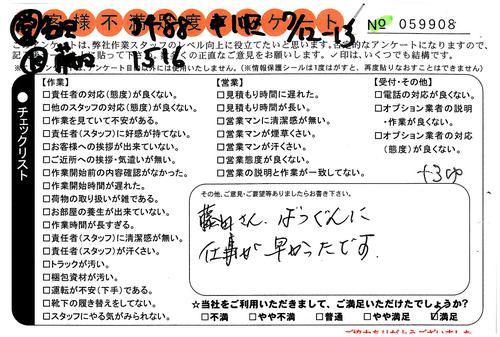 客様不満足度アンケート
No 059908
このアンケートは、弊社作業スタッフのレベル向上に役立てたいと思います。否定的なアンケートになりますので、
✓印は、いくつでも結構です。
チェックリスト
【作業】
□責任者の対応(態度)が良くない。
□他のスタッフの対応(態度)が良くない。
□作業を見ていて不安がある。
□責任者(スタッフ)に好感が持てない。
□お客様への挨拶が出来ていない。
□ご近所への挨拶・気遣いが無い。
□作業開始前の内容確認がなかった。
□作業開始時間が遅れた。
□荷物の取り扱いが雑である。
□お部屋の養生が出来ていない。
□作業時間が長すぎる。
□責任者(スタッフ)に清潔感が無い。
□責任者(スタッフ)が汗くさい。
□トラックが汚い。
□梱包資材が汚い。
□運転が不安(下手)である。
□靴下の履き替えをしてない。
□スタッフにやる気がみられない。
【営業】
□見積もり時間に遅れた。
□見積もり時間が長い。
□営業マンに清潔感が無い。
□営業マンが煙草くさい。
□営業マンが汗くさい。
□営業態度が良くない。
□営業の説明と作業が一致してない。
【受付・その他】
□電話の対応が良くない。
□オプション業者の説明
・作業が良くない。
□オプション業者の対応
(態度)が良くない。
その他、ご意見・ご要望等ありましたらお書き下さい。
藤田さん ばつぐんに
仕事が早かったです
☆当社をご利用いただきまして、ご満足いただけたでしょうか?
□不満 □やや不満 □普通 □やや満足 ☑満足
ご協力ありがとうございました